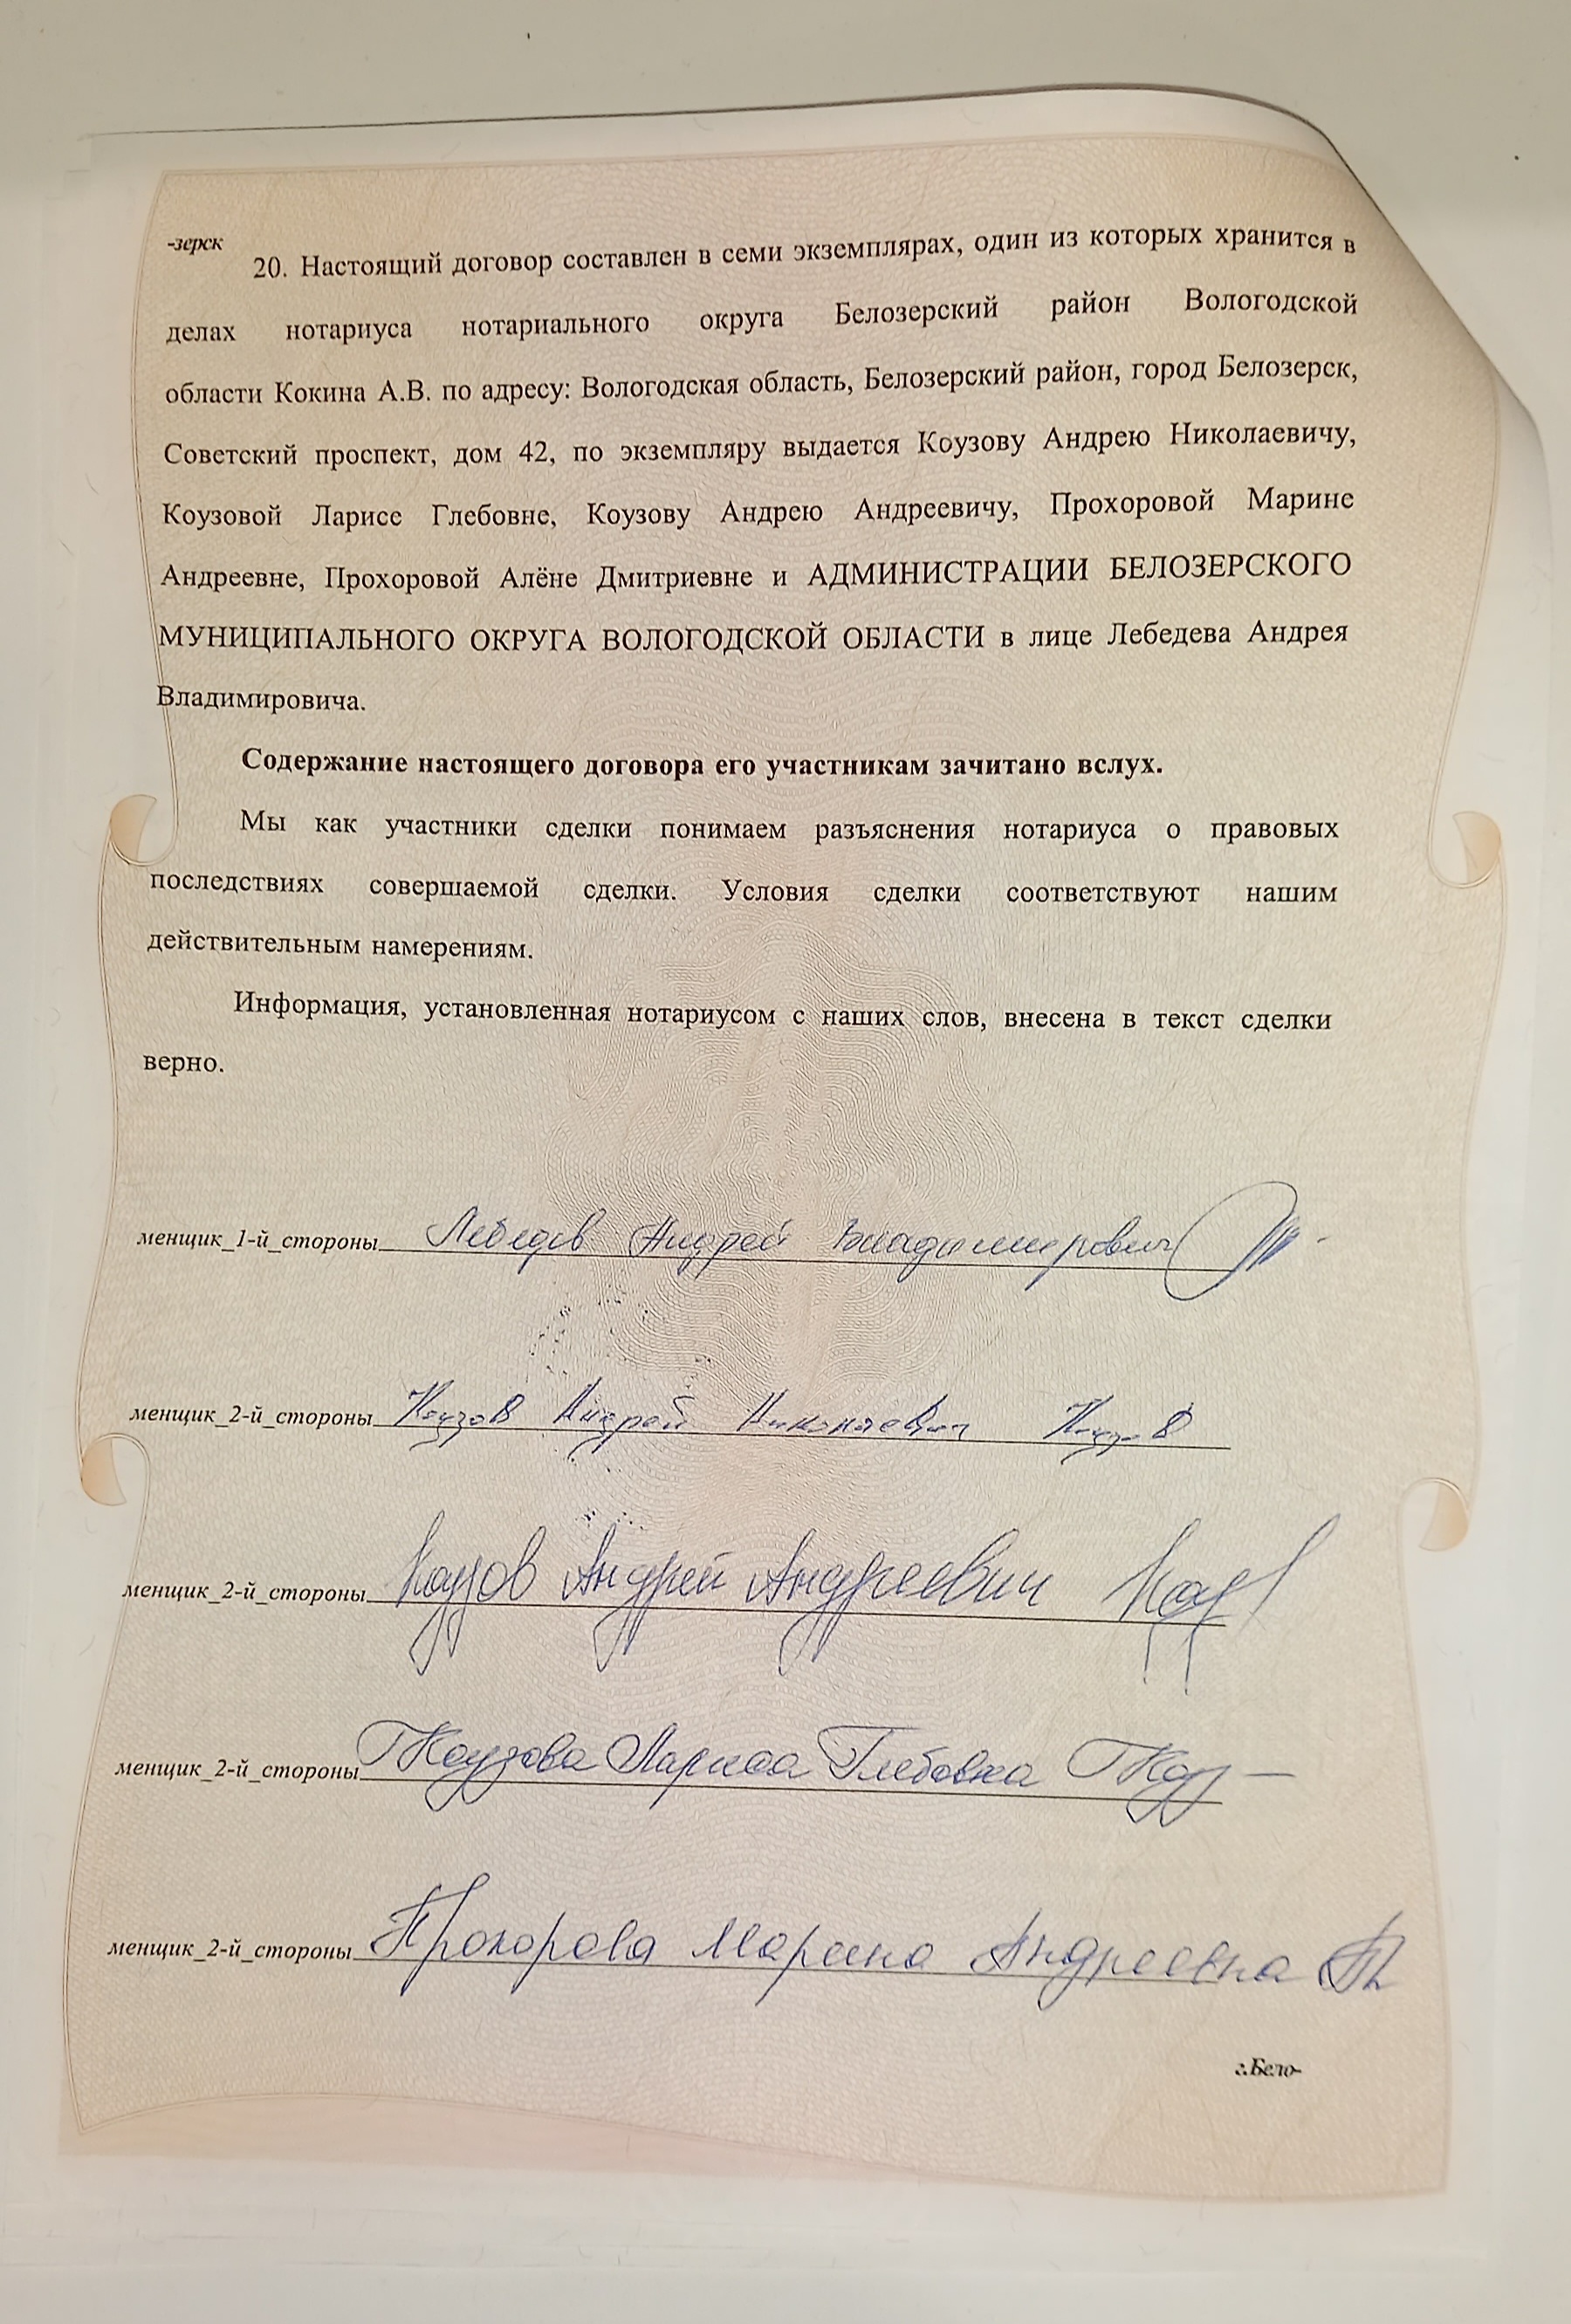 -зерск
20. Настоящий договор составлен в семи экземплярах, один из которых хранится в
делах нотариуса нотариального округа Белозерский район Вологодской
области Кокина А.В. по адресу: Вологодская область, Белозерский район, город Белозерск,
Советский проспект, дом 42, по экземпляру выдается Коузову Андрею Николаевичу,
Коузовой Ларисе Глебовне, Коузову Андрею Андреевичу, Прохоровой Марине
Андреевне, Прохоровой Алёне Дмитриевне и АДМИНИСТРАЦИИ БЕЛОЗЕРСКОГО
МУНИЦИПАЛЬНОГО ОКРУГА ВОЛОГОДСКОЙ ОБЛАСТИ в лице Лебедева Андрея
Владимировича.
Содержание настоящего договора его участникам зачитано вслух.
Мы как участники сделки понимаем разъяснения нотариуса о правовых
последствиях совершаемой сделки. Условия сделки соответствуют нашим
действительным намерениям.
Информация, установленная нотариусом с наших слов, внесена в текст сделки
верно.
менщик_1-й_стороны Лебедев Андрей Владимирович
менщик_2-й_стороны Коузов Андрей Николаевич Коузов
менщик_2-й_стороны Коузов Андрей Андреевич
менщик_2-й_стороны Коузова Лариса Глебовна
менщик_2-й_стороны Прохорова Марина Андреевна
г.Бело-